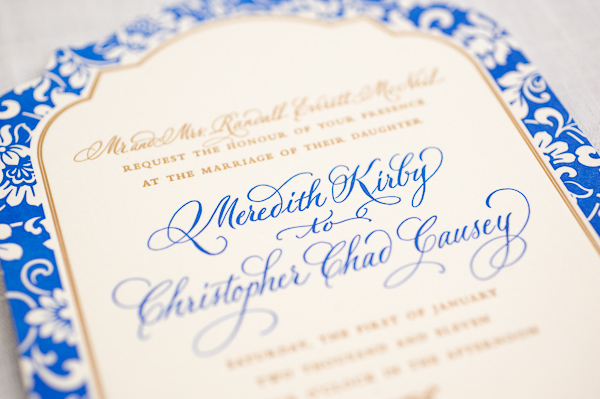 Mr. and Mrs. Randall Everett McNeil
REQUEST THE HONOUR OF YOUR PRESENCE
AT THE MARRIAGE OF THEIR DAUGHTER
Meredith Kirby
to
Christopher Chad Causey
SATURDAY, THE FIRST OF JANUARY
TWO THOUSAND AND ELEVEN
IN THE AFTERNOON